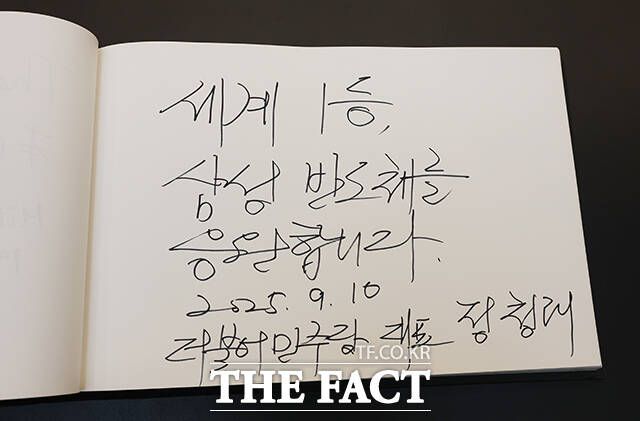 세계 1등,
삼성 반도체를
응원합니다.
2025. 9. 10
더불어민주당 대표 정청래
TF.CO.KR
THE FACT